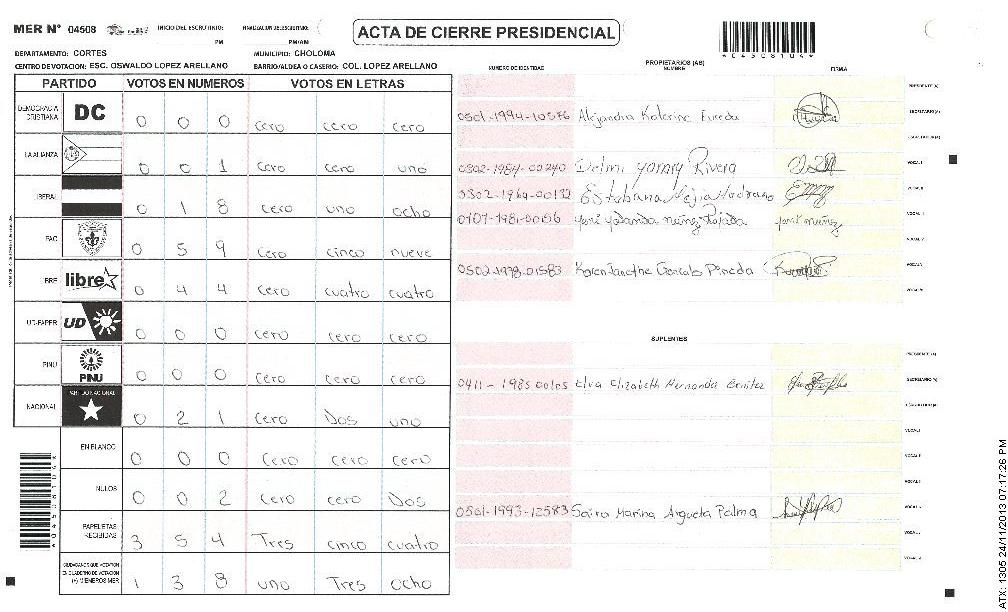 MER N° 04508 INICIO DEL ESCRUTINIO: FINALIZACION DEL ESCRUTINIO:
PM PM/AM
ACTA DE CIERRE PRESIDENCIAL
DEPARTAMENTO: CORTES MUNICIPIO: CHOLOMA
CENTRO DE VOTACION: ESC. OSWALDO LOPEZ ARELLANO BARRIO/ALDEA O CASERIO: COL. LOPEZ ARELLANO
PARTIDO VOTOS EN NUMEROS VOTOS EN LETRAS
DEMOCRACIA CRISTIANA DC 0 0 0 cero cero cero
LA ALIANZA 0 0 1 cero cero uno
LIBERAL 0 1 8 cero uno ocho
PAC 0 5 9 cero cinco nueve
libre 0 4 4 cero cuatro cuatro
UD-FAPER UD 0 0 0 cero cero cero
PINU PINU 0 0 0 cero cero cero
NACIONAL PARTIDO NACIONAL 0 2 1 cero Dos uno
EN BLANCO 0 0 0 cero cero cero
NULOS 0 0 2 cero cero Dos
PAPELETAS RECIBIDAS 3 5 4 Tres cinco cuatro
CIUDADANOS QUE VOTARON EN CUADERNO DE VOTACION (+) MIEMBROS MER 1 3 8 uno Tres ocho
*04508104*
PROPIETARIOS (AS)
NUMERO DE IDENTIDAD NOMBRE FIRMA
PRESIDENTE(A)
0501-1994-10576 Alejandra Katerine SECRETARIO(A)
0302-1984-00240 Yamny Rivera VOCAL I
0302-1964-00132 Estebana Mejia
0107-1981-00156
0502-1978-01583 Karen Janethe Gonzalo Pineda
SUPLENTES
PRESIDENTE(A)
0411-1985 00105 Elva Elizabeth Hernandez Benitez SECRETARIO(A)
0501-1993-12583 Saira Marina Argueta Palma
*04508104*
ATX: 1305 24/11/2013 07:17:26 PM